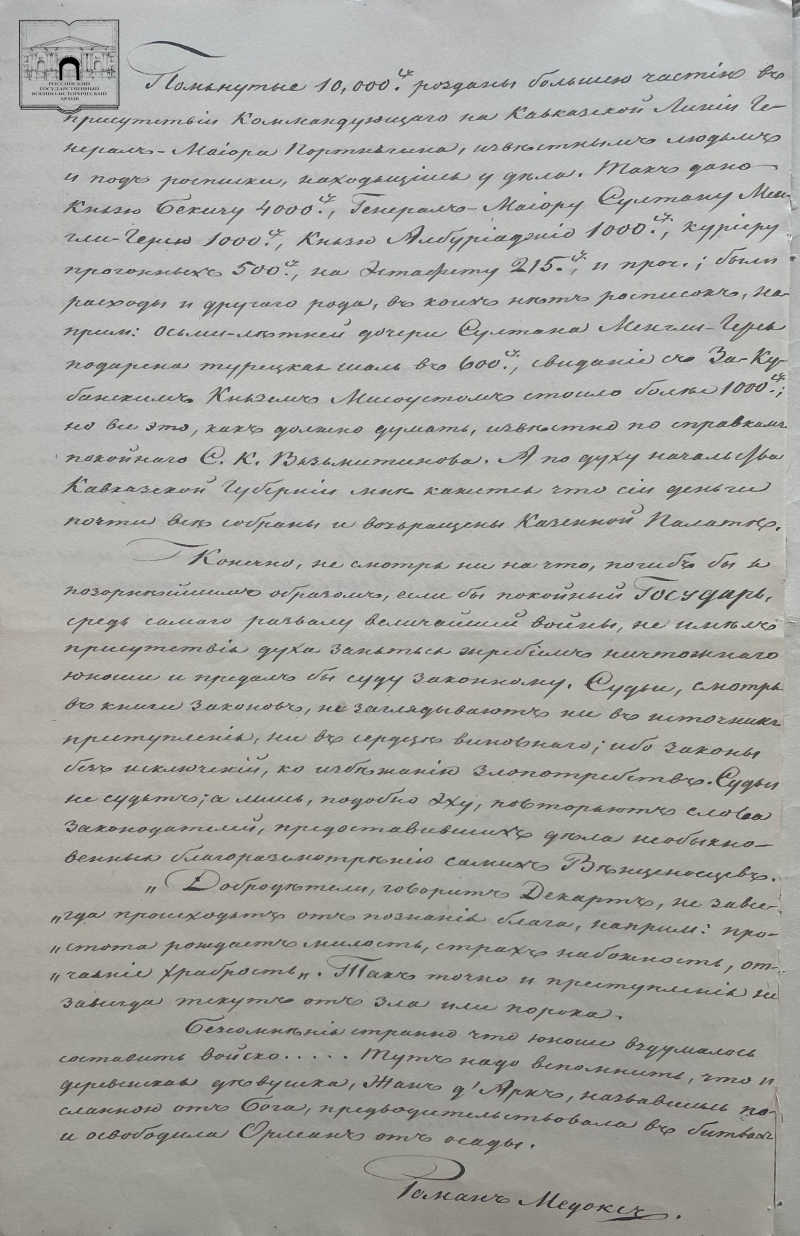 РОССИЙСКИЙ
ГОСУДАРСТВЕННЫЙ
ВОЕННО-ИСТОРИЧЕСКИЙ
АРХИВ
Помянутые 10,000. розданы большею частію въ
присутствіи Коммандующаго на Кавказской Линіи Ге-
нералъ-Маіора Портнягина, извѣстнымъ людямъ
и подъ росписки, находящіясь у дѣла. Такъ дано
Князю Бековичу 4000., Генералъ-Маіору Султану Мен-
гли-Герею 1000., Князю 1000., курьеру
прогонныхъ 500., на Эстафету 215., и проч.; были
расходы и другаго рода, въ коихъ нѣтъ росписокъ, на-
прим: осьми-лѣтней дочери Султана Менгли-Герея
подарена турецкая шаль въ 600., свиданіе съ За-Ку-
банскимъ Княземъ Мисоустомъ стоило болѣе 1000.;
но все это, какъ должно думать, извѣстно по справкамъ
покойнаго С. К. Вязьмитинова. А по духу начальства
Кавказской Губерніи мнѣ кажется что сіи деньги
почти всѣ собраны и возвращены Казенной Палатѣ.
Конечно, не смотря ни на что, погибъ бы я
позорнѣйшимъ образомъ, если бы покойный Государь,
средь самаго развалу величайшей войны, не имѣлъ
присутствія духа заняться жребіемъ ничтожнаго
юноши и предалъ бы суду законному. Судьи, смотря
въ книги законовъ, не заглядываютъ ни въ источники
преступленія, ни въ сердце виновнаго; ибо законы
безъ исключеній, ко избѣжанію злопотребствъ. Судьи
не судятъ; а лишь, подобно эху, повторяютъ слова
Законодателей, предоставившихъ дѣла необыкно-
венныя благоразсмотрѣнію самихъ Вѣнценосцевъ.
„Добродѣтели, говоритъ Декартъ, не всег-
„гда происходятъ отъ познанія блага, наприм: про-
„стота рождаетъ милость, страхъ набожность, от-
„чаяніе храбрость„. Такъ точно и преступленія не
завсегда текутъ отъ зла или порока.
Безсомнѣнія странно что юношѣ вздумалось
составить войско..... Тутъ надо вспомнить, что и
деревенская дѣвушка, Жанъ д'Аркъ, назвавшись по-
сланною отъ Бога, предводительствовала въ битвахъ
и освободила Орлеанъ отъ осады.
Романъ Медоксъ.